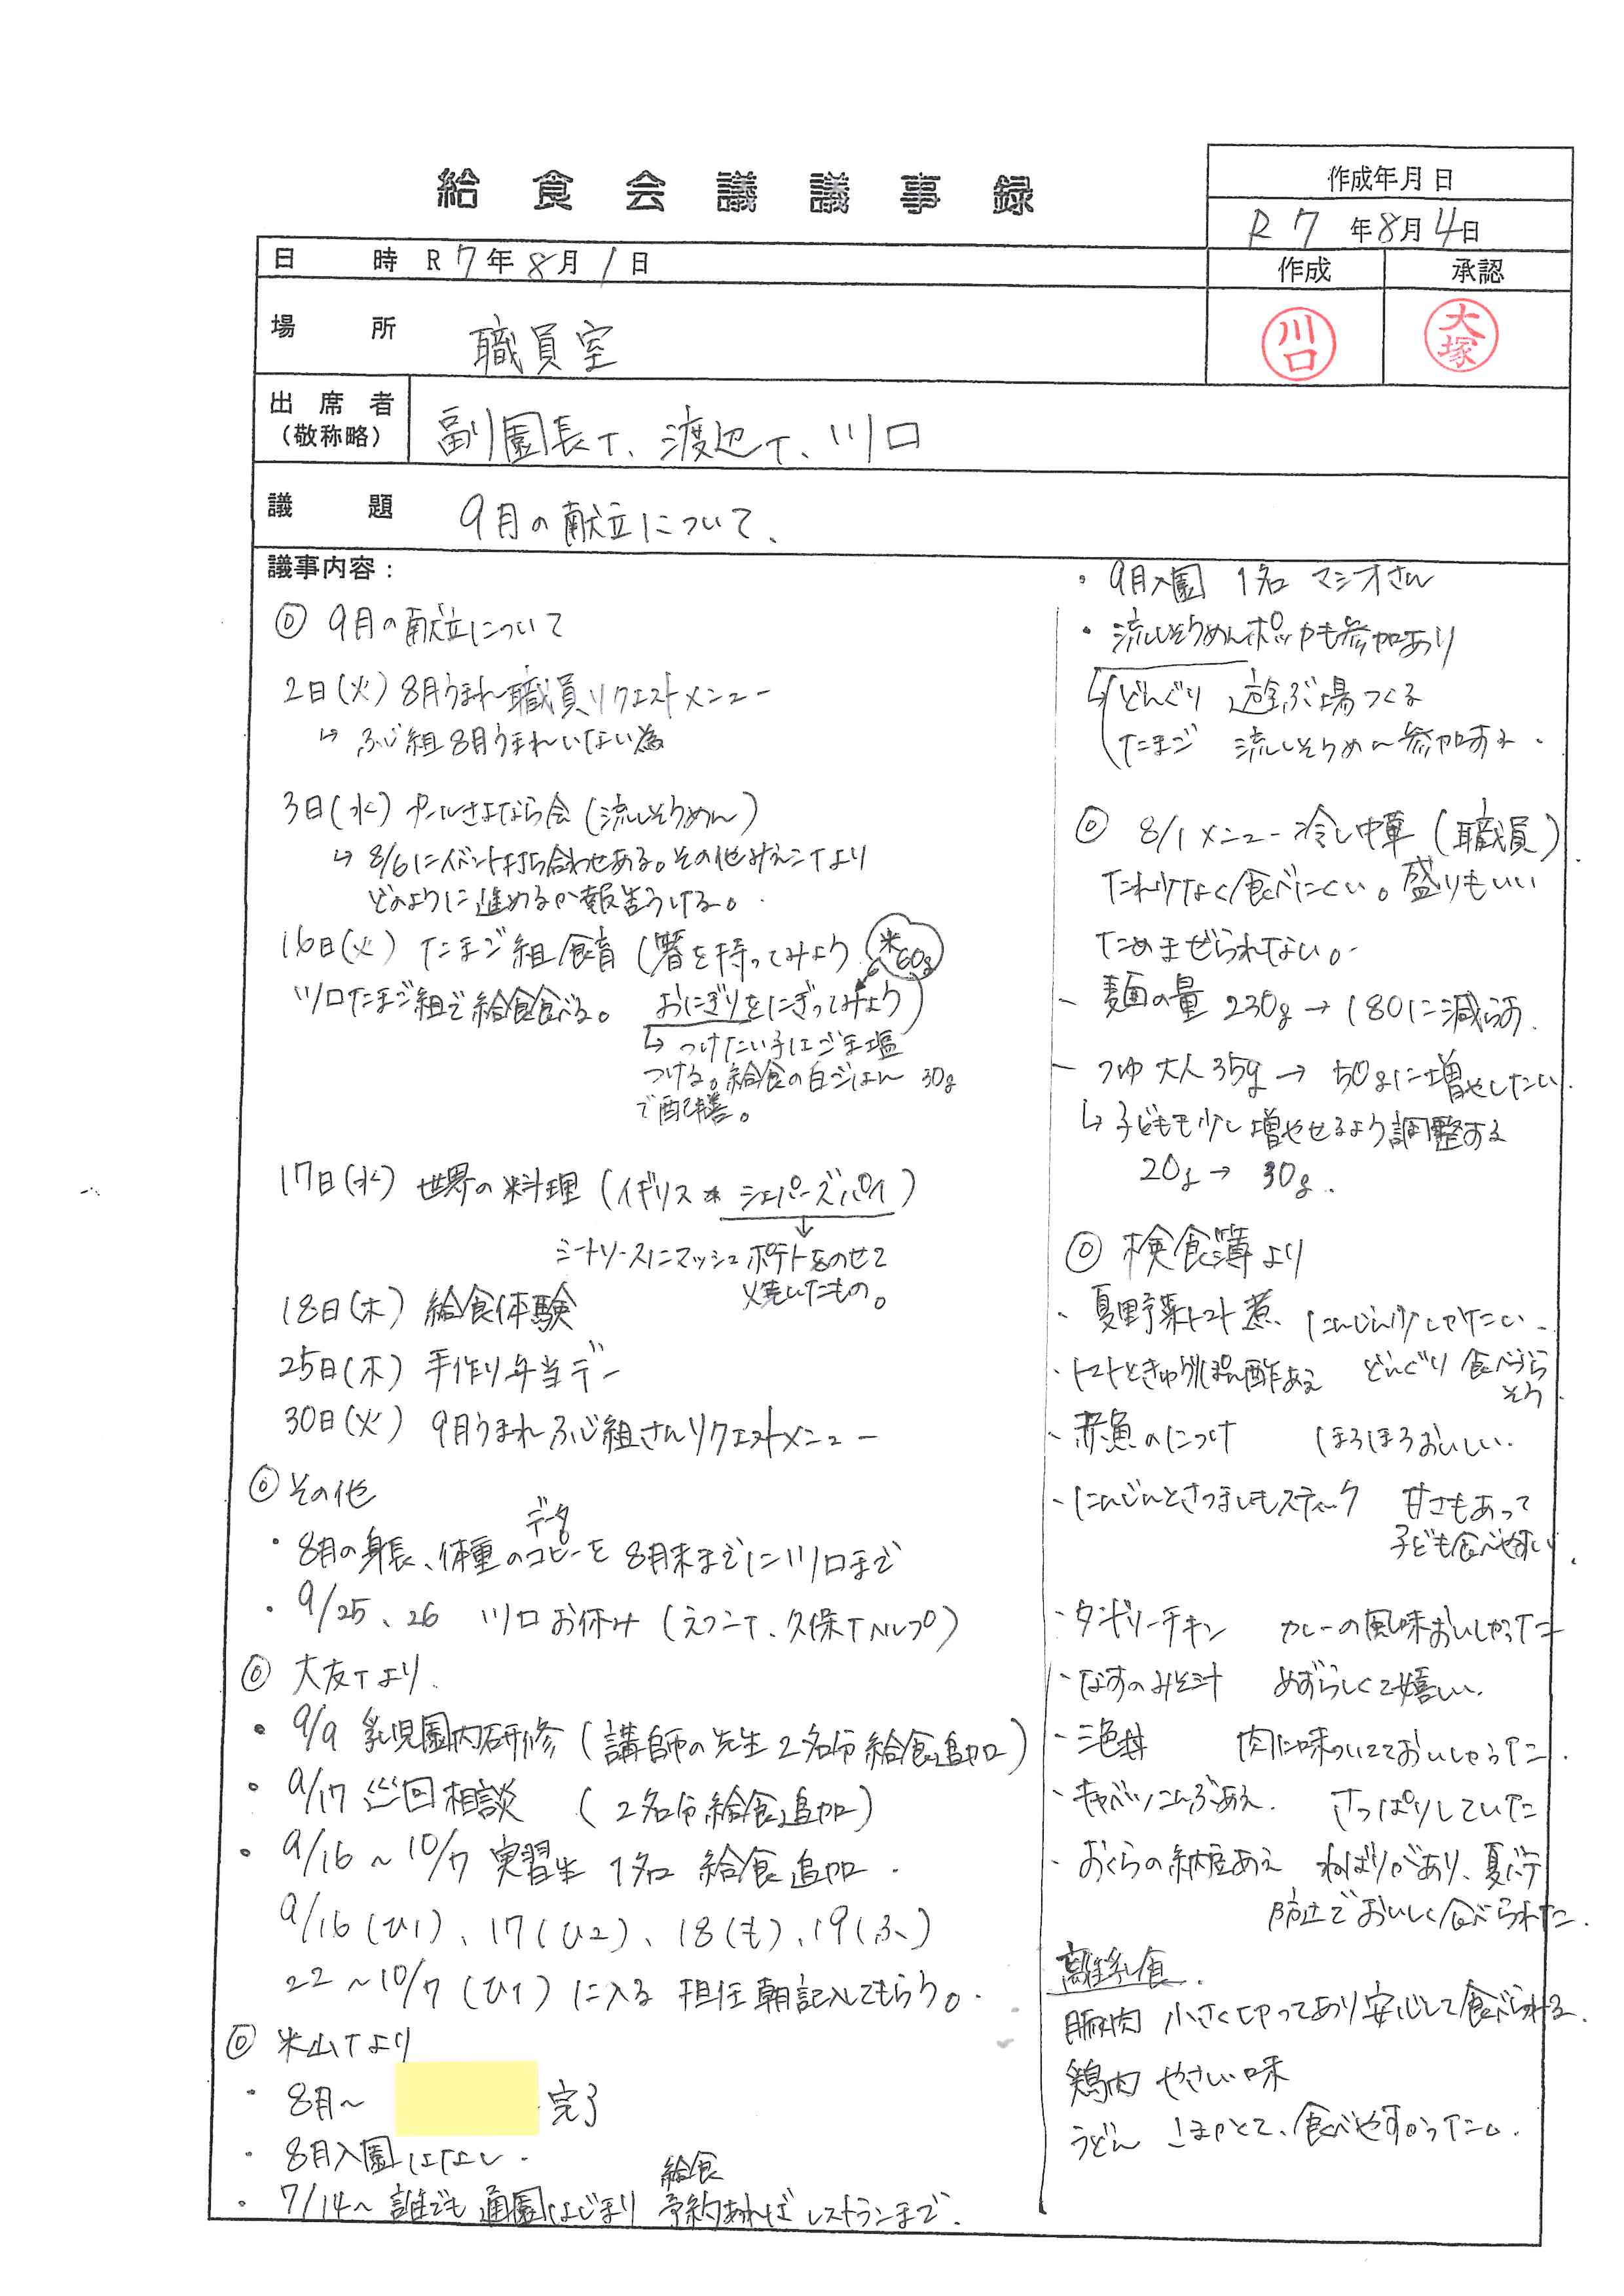 給食会議議事録
作成年月日
R7年8月4日
作成 承認
川口 大塚
日時 R7年8月1日
場所 職員室
出席者(敬称略) 副園長T、渡辺T、川口
議題 9月の献立について、
議事内容：
◎ 9月の献立について
2日(火) 8月うまれ職員リクエストメニュー
↳ ふじ組8月うまれいない為
3日(水) プールさよなら会(流しそうめん)
↳ 8/6にイベント打ち合わせある。その他みえこTより
どのように進めるか報告うける。
16日(火) たまご組食育(箸を持ってみよう 米60g
川口たまご組で給食食べる。 おにぎりをにぎってみよう)
↳ つけたい子はごま塩
つける。給食の白ごはん 30g
で配膳。
17日(水) 世界の料理(イギリス* シェパーズパイ)
↓
ミートソースにマッシュポテトをのせて
焼いたもの。
18日(木) 給食体験
25日(木) 手作り弁当デー
30日(火) 9月うまれふじ組さんリクエストメニュー
◎ その他
データ
・8月の身長、体重のコピーを8月末までに川口まで
・9/25、26 川口お休み(えつこT、久保Tヘルプ)
◎ 大友Tより
・9/9 乳児園内研修(講師の先生2名分給食追加)
・9/17 巡回相談 (2名分給食追加)
・9/16〜10/7 実習生 1名 給食追加.
9/16(ひ1)、17(ひ2)、18(も)、19(ふ)
22〜10/7(ひ1)に入る 担任朝記入してもらう。
◎ 米山Tより
・8月〜 完了
・8月入園はなし.
給食
・7/14〜 誰でも通園はじまり 予約あればレストランまで.
・9月入園 1名 マシオさん
・流しそうめんポッカも参加あり
↳ どんぐり 遊ぶ場つくる
たまご 流しそうめん参加する.
◎ 8/1メニュー冷し中華(職員)
たれ少なく食べにくい。盛りもいい
ためまぜられない。
- 麺の量 230g→180に減らす.
- つゆ 大人35g→ 50gに増やしたい.
↳ 子どもも少し増やせるよう調整する
20g→ 30g.
◎ 検食簿より
・夏野菜トマト煮 にんじん少しかたい.
・トマトときゅうりぽん酢あえ どんぐり 食べづら
そう.
・赤魚のにつけ ほろほろおいしい.
・にんじんとさつまいもスティック 甘さもあって
子ども食べやすい.
・タンドリーチキン カレーの風味おいしかった
・なすのみそ汁 めずらしくて嬉しい.
・三色丼 肉に味ついてておいしかった.
・キャベツこんぶあえ. さっぱりしていた
・おくらの納豆あえ ねばりがあり、夏バテ
防止でおいしく食べられた.
離乳食.
豚肉 小さく切ってあり安心して食べられる.
鶏肉 やさしい味
うどん こまかくて、食べやすかった。